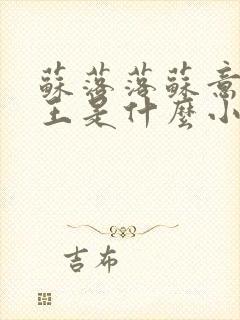 蘇落落蘇意
主是什麼小
吉布